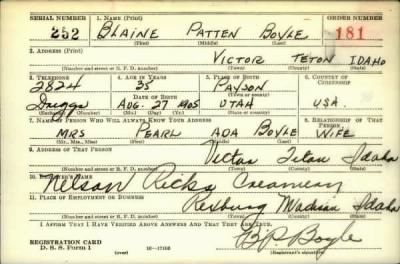 SERIAL NUMBER 1. NAME (Print) ORDER NUMBER
252 BLAINE PATTEN BOYLE 181
(First) (Middle) (Last)
2. ADDRESS (Print)
VICTOR TETON IDAHO
(Number and street or R. F. D. number) (Town) (County) (State)
3. TELEPHONE 4. AGE IN YEARS 5. PLACE OF BIRTH 6. COUNTRY OF CITIZENSHIP
2824 35 PAYSON
DATE OF BIRTH (Town or county)
Driggs AUG. 27 1905 UTAH USA.
(Exchange) (No.) (Mo.) (Day) (Yr.) (State or country)
7. NAME OF PERSON WHO WILL ALWAYS KNOW YOUR ADDRESS 8. RELATIONSHIP OF THAT PERSON
MRS PEARL ADA BOYLE WIFE
(Mr., Mrs., Miss) (First) (Middle) (Last)
9. ADDRESS OF THAT PERSON
Victor Teton Idaho
(Number and street or R. F. D. number) (Town) (County) (State)
10. EMPLOYER'S NAME
Nelson Ricks Creamery
11. PLACE OF EMPLOYMENT OR BUSINESS
Rexburg Madison Idaho
(Number and street or R. F. D. number) (Town) (County) (State)
I AFFIRM THAT I HAVE VERIFIED ABOVE ANSWERS AND THAT THEY ARE TRUE.
REGISTRATION CARD B.P. Boyle
D. S. S. Form 1 (over) (Registrant's signature)